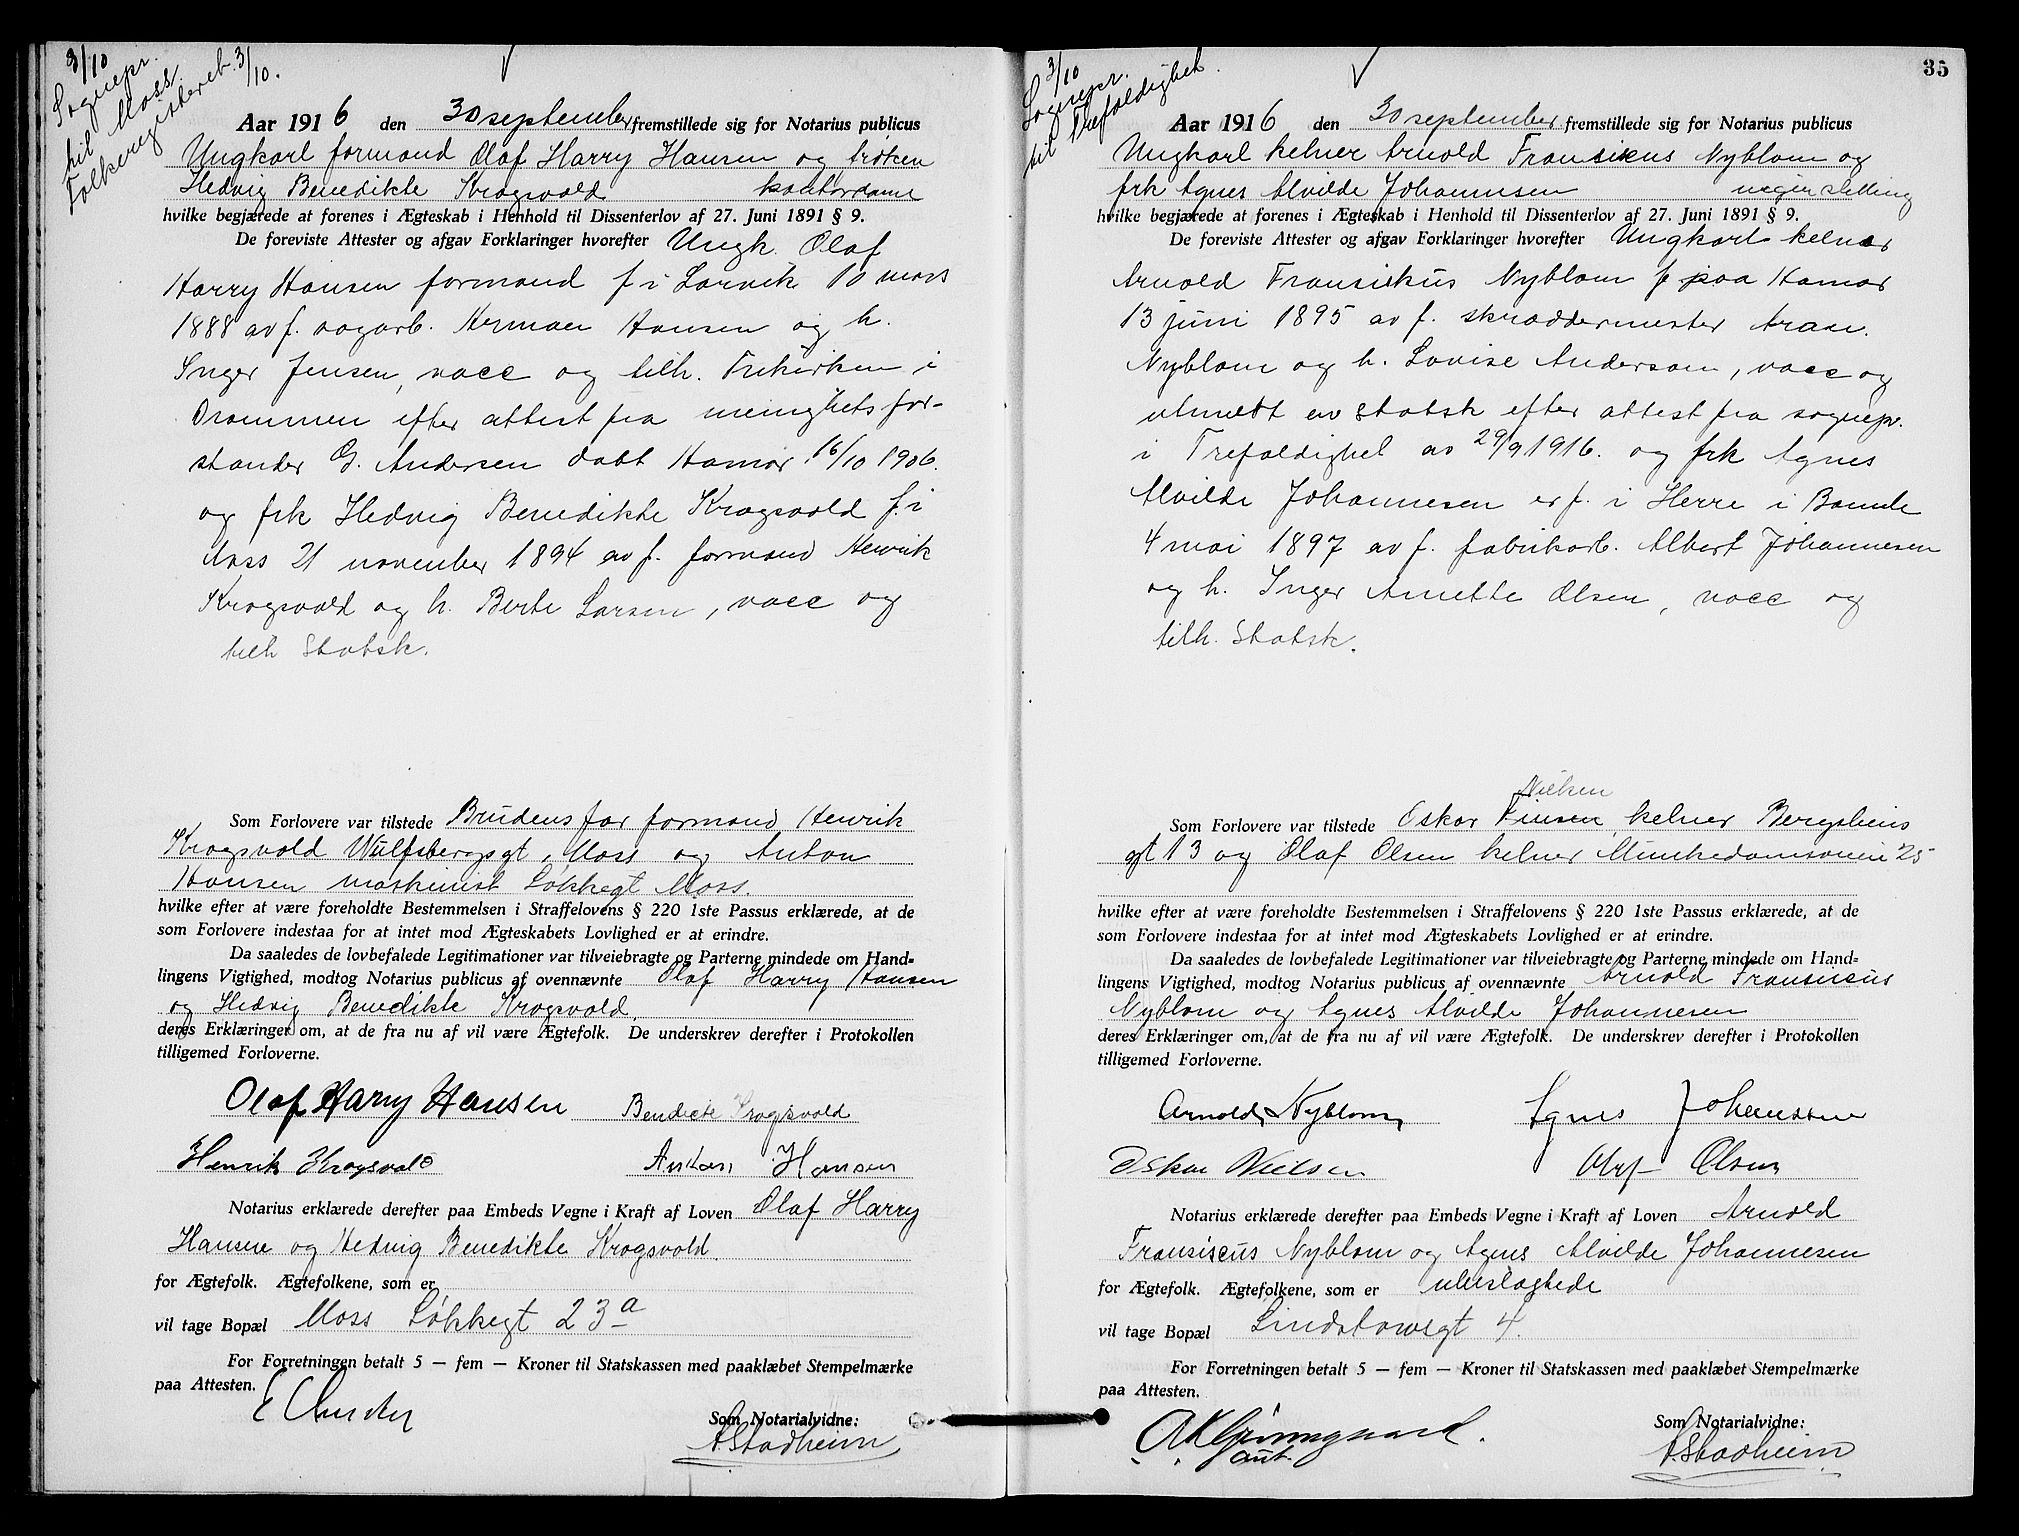 3/10
Sognepr.
til Moss
Folkeregisteret 3/10.
Aar 1916 den 30 september fremstillede sig for Notarius publicus
Ungkarl formand Olaf Harry Hansen og frøken
Hedvig Benedikte Krogsvold kontordame
hvilke begjærede at forenes i Ægteskab i Henhold til Dissenterlov af 27. Juni 1891 § 9.
De foreviste Attester og afgav Forklaringer hvorefter Ungk. Olaf
Harry Hansen formand f i Larvik 10 mars
1888 av f. Herman Hansen og h.
Inger Jensen, vacc og tilh. Frikirken i
Drammen efter attest fra menighetsfor-
stander G. Andersen dabt Hamar 16/10 1906.
og frk Hedvig Benedikte Krogsvold f. i
Moss 21 november 1894 av f. formand Henrik
Krogsvold og h. Berte Larsen, vacc og
tilh Statsk.
Som Forlovere var tilstede Brudens far formand Henrik
Krogsvold Wulfsbergsgt, Moss og Anton
Hansen maskinist Løkkegt Moss.
hvilke efter at være foreholdte Bestemmelsen i Straffelovens § 220 1ste Passus erklærede, at de
som Forlovere indestaa for at intet mod Ægteskabets Lovlighed er at erindre.
Da saaledes de lovbefalede Legitimationer var tilveiebragte og Parterne mindede om Hand-
lingens Vigtighed, modtog Notarius publicus af ovennævnte Olaf Harry Hansen
og Hedvig Benedikte Krogsvold.
deres Erklæringer om, at de fra nu af vil være Ægtefolk. De underskrev derefter i Protokollen
tilligemed Forloverne.
Olaf Harry Hansen Bendicte Krogsvold
Henrik Krogsvold Anton Hansen
Notarius erklærede derefter paa Embeds Vegne i Kraft af Loven Olaf Harry
Hansen og Hedvig Benedikte Krogsvold.
for Ægtefolk. Ægtefolkene, som er
vil tage Bopæl Moss Løkkegt 23a
For Forretningen betalt 5 — fem — Kroner til Statskassen med paaklæbet Stempelmærke
paa Attesten.
Som Notarialvidne:
A Stadheim
35
3/10
Sognepr.
til Trefoldighet.
Aar 1916 den 30 september fremstillede sig for Notarius publicus
Ungkarl kelner Arnold Fransiskus Nyblom og
frk Agnes Alvilde Johannesen ingen stilling
hvilke begjærede at forenes i Ægteskab i Henhold til Dissenterlov af 27. Juni 1891 § 9.
De foreviste Attester og afgav Forklaringer hvorefter Ungkarl kelner
Arnold Fransiskus Nyblom f paa Hamar
13 juni 1895 av f. skræddermester
Nyblom og h. Lovise Anderson, vacc og
utmeldt av statsk efter attest fra sognepr.
i Trefoldighet av 29/9 1916. og frk Agnes
Alvilde Johannesen er f. i Herre i Bamle
4 mai 1897 av f. fabrikarb. Albert Johannesen
og h. Inger Anette Olsen, vacc og
tilh. Statsk.
Nielsen
Som Forlovere var tilstede Oskar Finsen kelner Bergsliens
gt 13 og Olaf Olsen kelner Munkedamsveien 25
hvilke efter at være foreholdte Bestemmelsen i Straffelovens § 220 1ste Passus erklærede, at de
som Forlovere indestaa for at intet mod Ægteskabets Lovlighed er at erindre.
Da saaledes de lovbefalede Legitimationer var tilveiebragte og Parterne mindede om Hand-
lingens Vigtighed, modtog Notarius publicus af ovennævnte Arnold Fransiscus
Nyblom og Agnes Alvilde Johannesen
deres Erklæringer om, at de fra nu af vil være Ægtefolk. De underskrev derefter i Protokollen
tilligemed Forloverne.
Arnold Nyblom Agnes Johannesen
Oskar Nielsen Olaf Olsen
Notarius erklærede derefter paa Embeds Vegne i Kraft af Loven Arnold
Fransiscus Nyblom og Agnes Alvilde Johannesen
for Ægtefolk. Ægtefolkene, som er ubeslægtede
vil tage Bopæl Lindstowsgt 4.
For Forretningen betalt 5 — fem — Kroner til Statskassen med paaklæbet Stempelmærke
paa Attesten.
Som Notarialvidne:
aut.
A. Stadheim